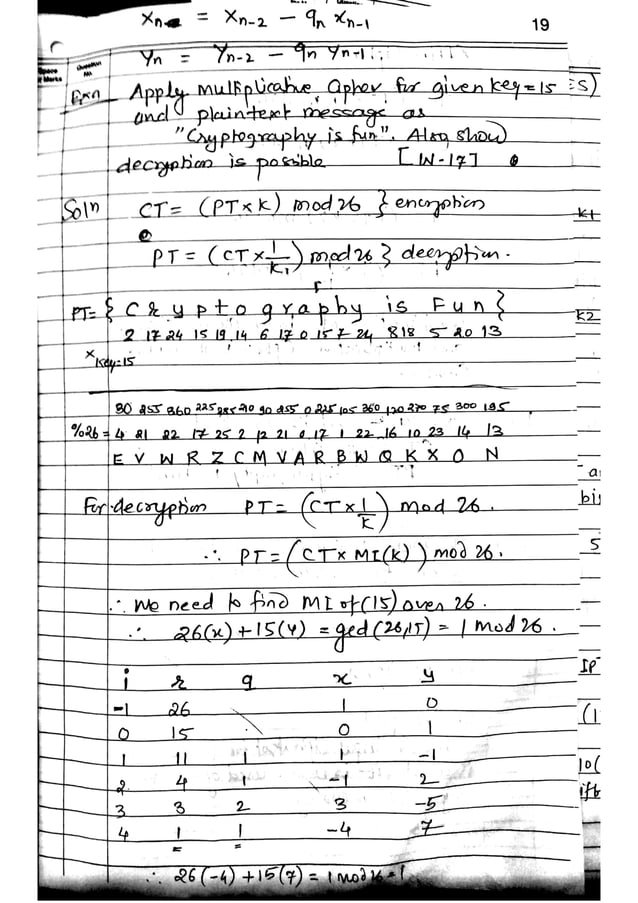 xn = xn-2 - qn xn-1
19
yn = yn-2 - qn yn-1
Question No.
Exn Apply multiplicative cipher for given key=15
and plaintext message as
"Cryptography is fun". Also show
decryption is possible [W-17]
Soln CT = (PT x K) mod 26 } encryption
K1
PT = (CT x 1/K) mod 26 } decryption.
PT = { C r y p t o g r a p h y is Fun }
K2
2 17 24 15 19 14 6 17 0 15 7 24 8 18 5 20 13
x key=15
30 255 360 225 285 210 90 255 0 225 105 360 120 270 75 300 195
%26 = 4 21 22 17 25 2 12 21 0 17 1 22 16 10 23 14 13
E V W R Z C M V A R B W Q K X O N
For decryption PT = (CT x 1/K) mod 26.
∴ PT = (CT x MI(K)) mod 26.
∴ We need to find MI of (15) over 26.
∴ 26(x) + 15(y) = gcd(26,15) = 1 mod 26.
i r q x y
-1 26 1 0
0 15 0 1
1 11 1 1 -1
2 4 1 -1 2
3 3 2 3 -5
4 1 1 -4 7
∴ 26(-4) + 15(7) = 1 mod 26 = 1